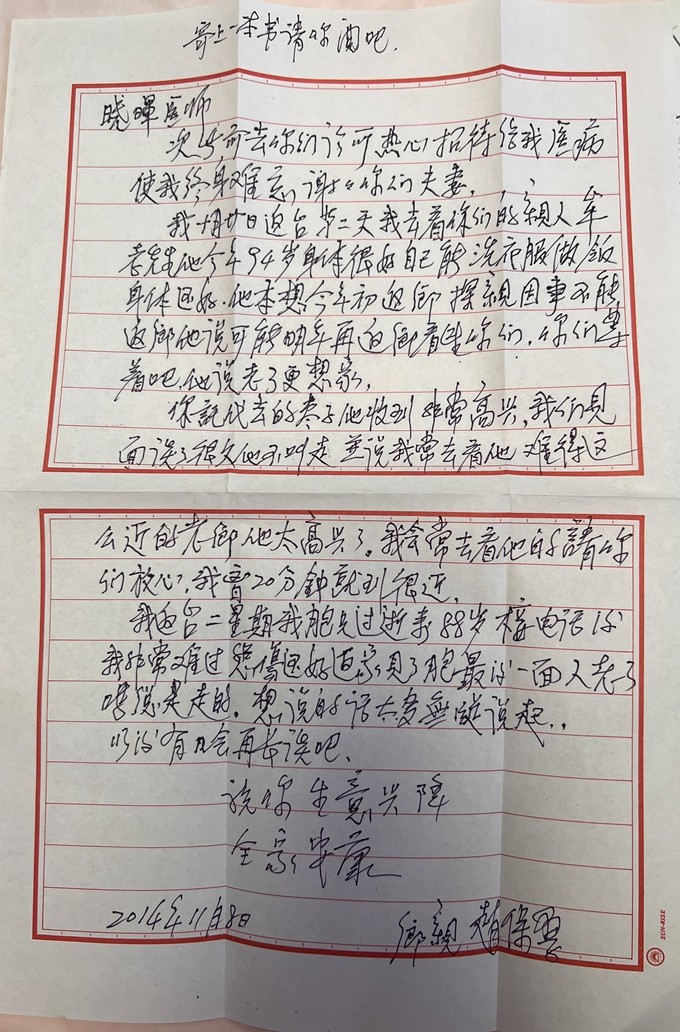 寄上一本书请你阅吧.
晓晖医师
次前去你们诊可热心招待给我医病
使我终身难忘,谢谢你们夫妻.
我十月廿日返台第二天我去看你们的親人牟
老先生他今年94岁身体很好自己能洗衣服做飯
身体还好.他本想今年初返鄉探親因事不能
返鄉他说可能明年再返鄉看望你们.你们等
着吧.他说老了更想家.
你託代去的枣子他收到非常高兴,我们见
面谈了很久他不叫走並说我常去看他难得这
么近的老鄉他太高兴了.我会常去看他的請你
们放心,我去20分鐘就到很近.
我返台二星期我胞兄过逝享88岁接电话后
我非常难过悲傷还好返家見了胞兄最后一面人老了
总是走的.想说的话太多無從说起..
以后有机会再长谈吧.
祝你生意兴隆
全家安康
2014年11月8日
鄉親 趙保
SUN-RISE